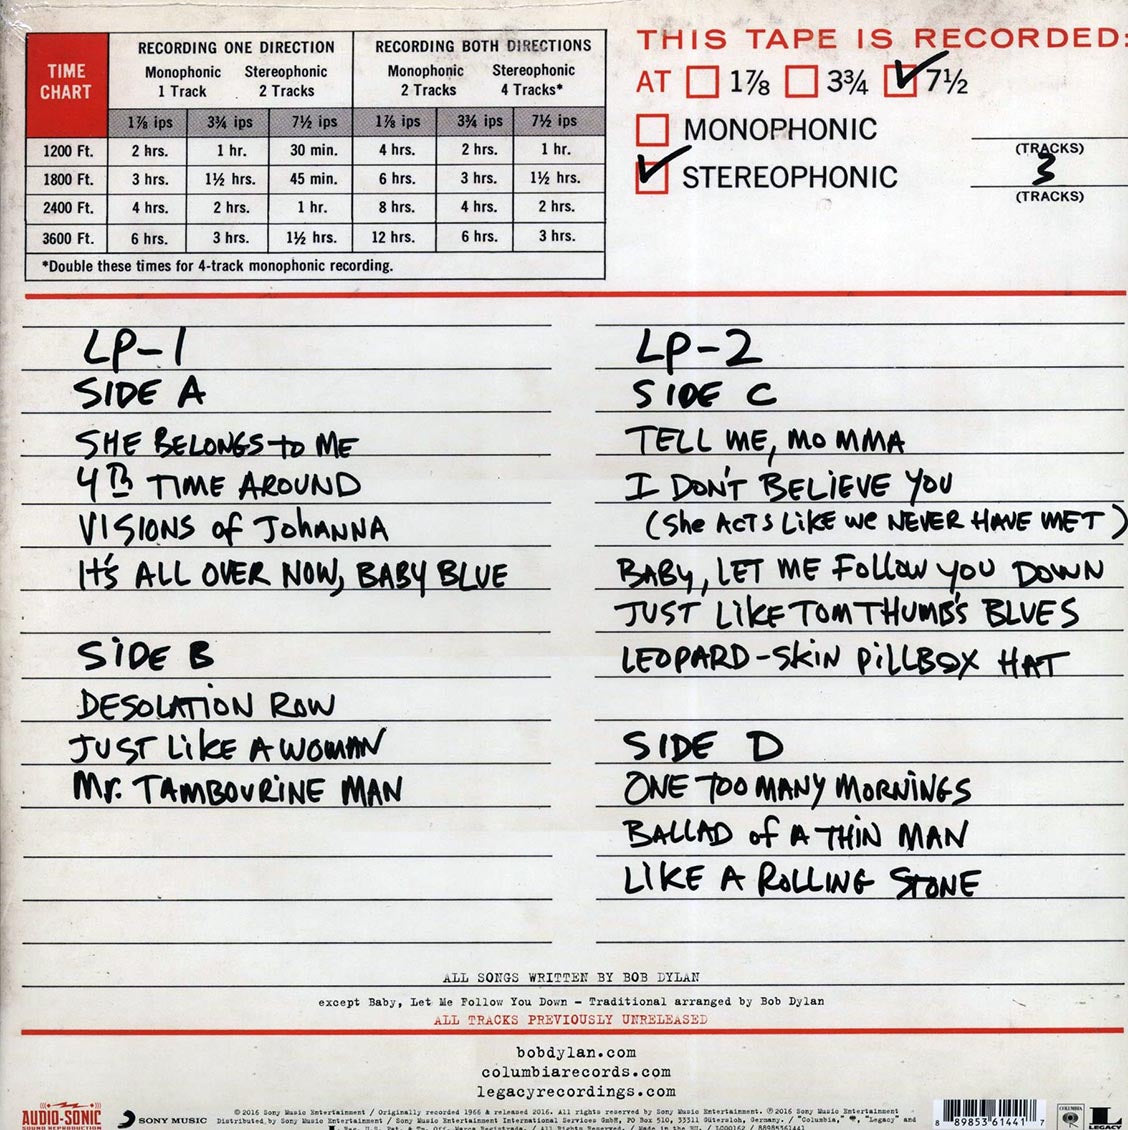 TIME CHART
RECORDING ONE DIRECTION
RECORDING BOTH DIRECTIONS
Monophonic 1 Track
Stereophonic 2 Tracks
Monophonic 2 Tracks
Stereophonic 4 Tracks*
1⅞ ips 3¾ ips 7½ ips 1⅞ ips 3¾ ips 7½ ips
1200 Ft. 2 hrs. 1 hr. 30 min. 4 hrs. 2 hrs. 1 hr.
1800 Ft. 3 hrs. 1½ hrs. 45 min. 6 hrs. 3 hrs. 1½ hrs.
2400 Ft. 4 hrs. 2 hrs. 1 hr. 8 hrs. 4 hrs. 2 hrs.
3600 Ft. 6 hrs. 3 hrs. 1½ hrs. 12 hrs. 6 hrs. 3 hrs.
*Double these times for 4-track monophonic recording.
THIS TAPE IS RECORDED:
AT 1⅞ 3¾ 7½
MONOPHONIC
(TRACKS)
STEREOPHONIC 3
(TRACKS)
LP-1
SIDE A
SHE BELONGS to ME
4th TIME AROUND
VISIONS of JOHANNA
It's ALL OVER NOW, BABY BLUE
SIDE B
DESOLATION ROW
JUST LIKE A WOMAN
Mr. TAMBOURINE MAN
LP-2
SIDE C
TELL ME, MOMMA
I DON'T BELIEVE YOU
(She ACTS LIKE WE NEVER HAVE MET)
BABY, LET ME FOLLOW YOU DOWN
JUST LIKE TOM THUMB'S BLUES
LEOPARD-SKIN PILLBOX HAT
SIDE D
ONE TOO MANY MORNINGS
BALLAD of A THIN MAN
LIKE A ROLLING STONE
ALL SONGS WRITTEN BY BOB DYLAN
except Baby, Let Me Follow You Down – Traditional arranged by Bob Dylan
ALL TRACKS PREVIOUSLY UNRELEASED
bobdylan.com
columbiarecords.com
legacyrecordings.com
AUDIO-SONIC
SOUND REPRODUCTION
SONY MUSIC
© 2016 Sony Music Entertainment / Originally recorded 1966 & released 2016. All rights reserved by Sony Music Entertainment. ℗ 2016 Sony Music Entertainment /
Distributed by Sony Music Entertainment / Sony Music Entertainment International Services GmbH, PO Box 510, 33311 Gütersloh, Germany. / "Columbia," "Legacy" and
Reg. U.S. Pat. & Tm. Off. Marca Registrada. / All Rights Reserved. / Made in the EU. / 88985361441
8 89853 61441 7
COLUMBIA
LEGACY